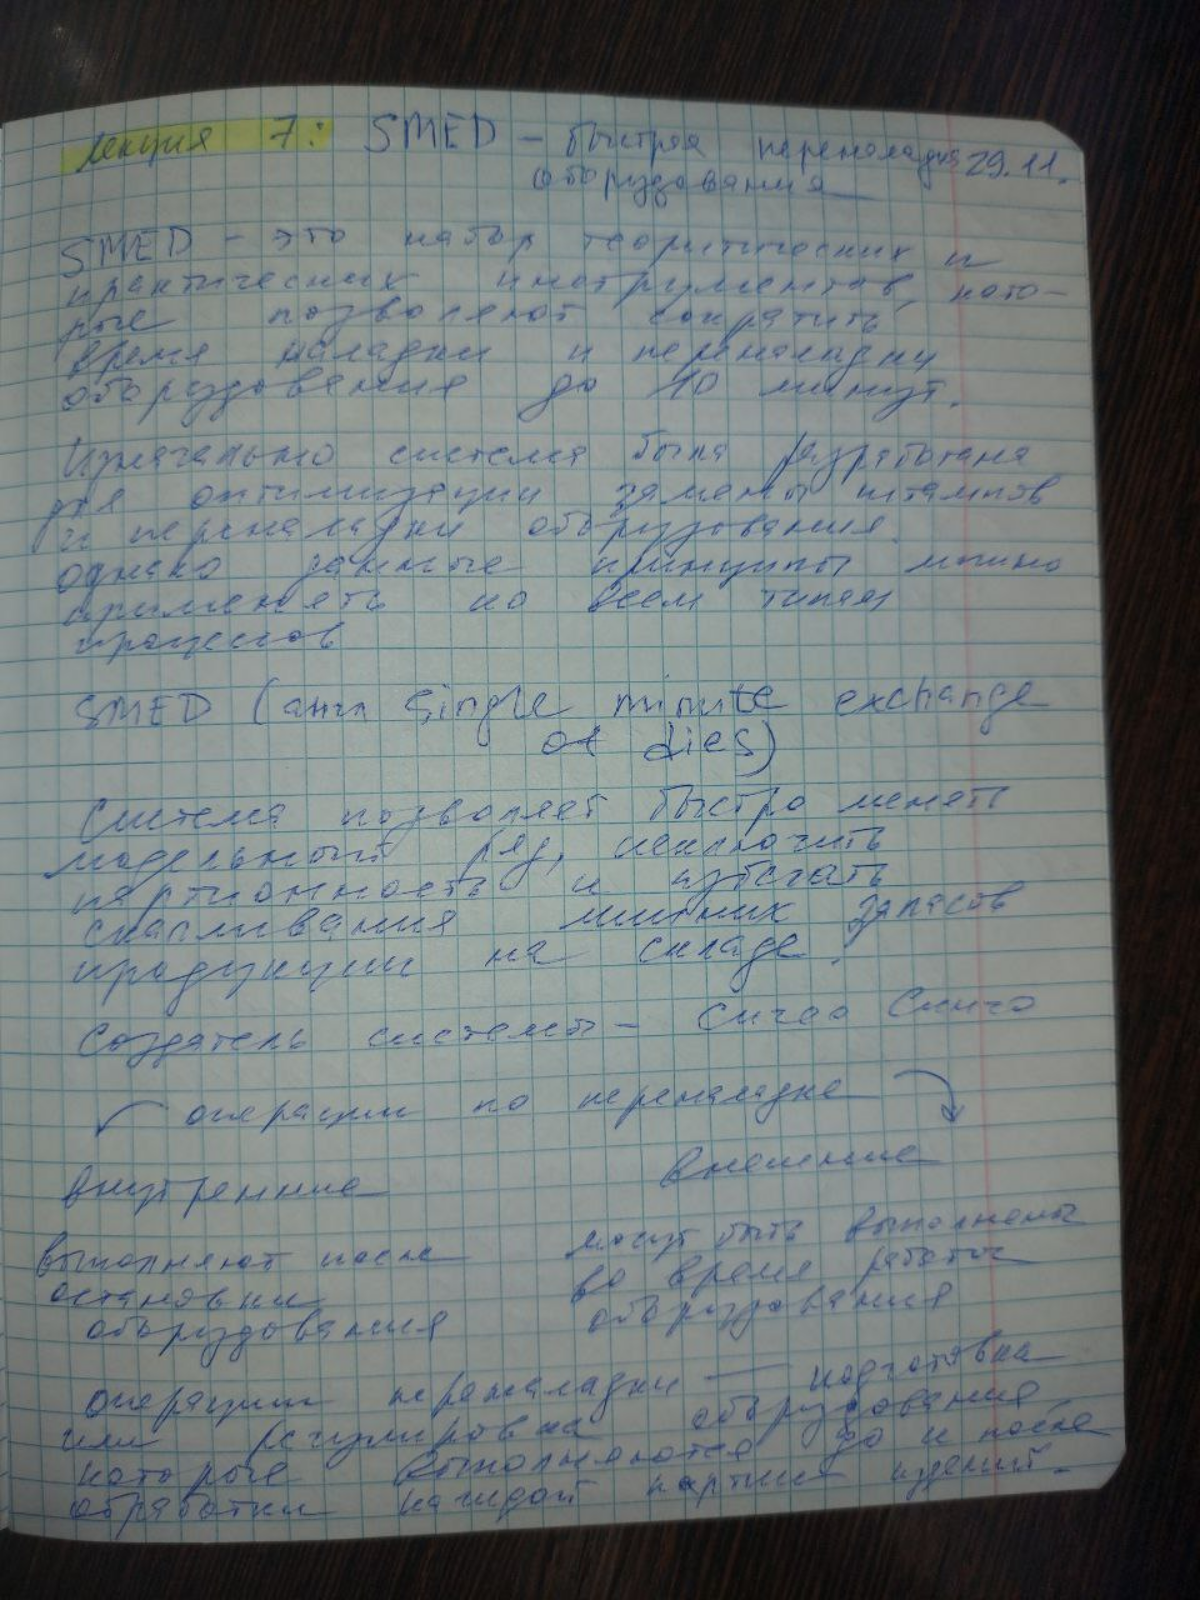 лекция 7: SMED - быстрая переналадка 29.11.
оборудования
SMED - это набор теоритических и
практических инструментов, кото-
рые позволяют сократить
время наладки и переналадки
оборудования до 10 минут.
Изначально система была разработана
для оптимизации замены штампов
и переналадки оборудования.
однако данные принципы можно
применять ко всем типам
процессов
SMED (англ Single minute exchange
of dies)
Система позволяет быстро менять
модельный ряд, исключить
партионность и избегать
скапливания лишних запасов
продукции на складе.
Создатель системы - Сигео Синго
операции по переналадке
внутренние внешние
выполняют после могут быть выполнены
остановки во время работы
оборудования оборудования
операции переналадки - подготовка
или регулировка оборудования
которые выполняются до и после
обработки каждой партии изделий.